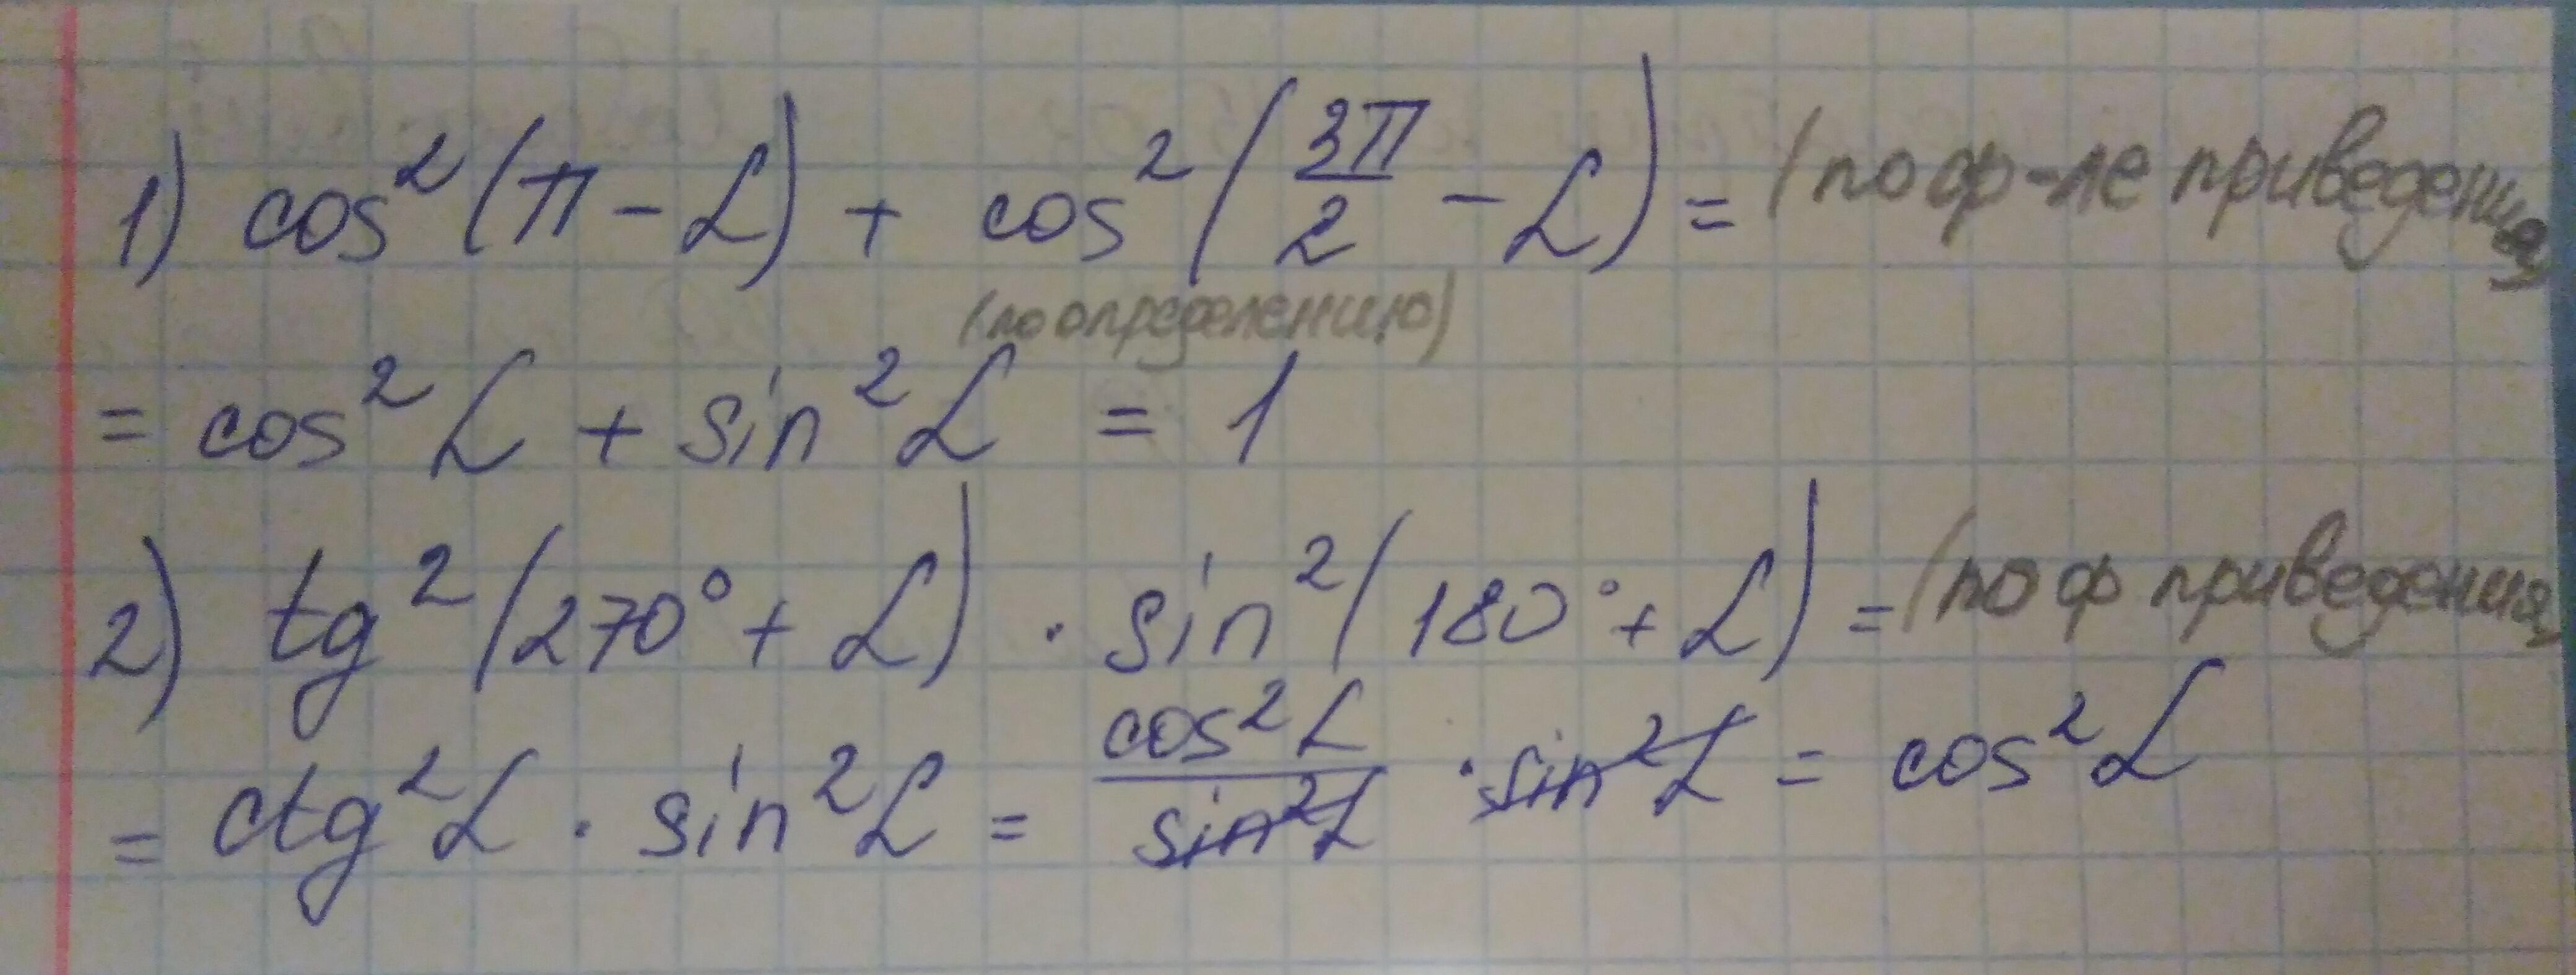 1) cos²(π - α) + cos²(3π/2 - α) = (по ф-ле приведения
(по определению)
= cos²α + sin²α = 1
2) tg²(270° + α) · sin²(180° + α) = (по ф приведения
= ctg²α · sin²α = cos²α/sin²α · sin²α = cos²α